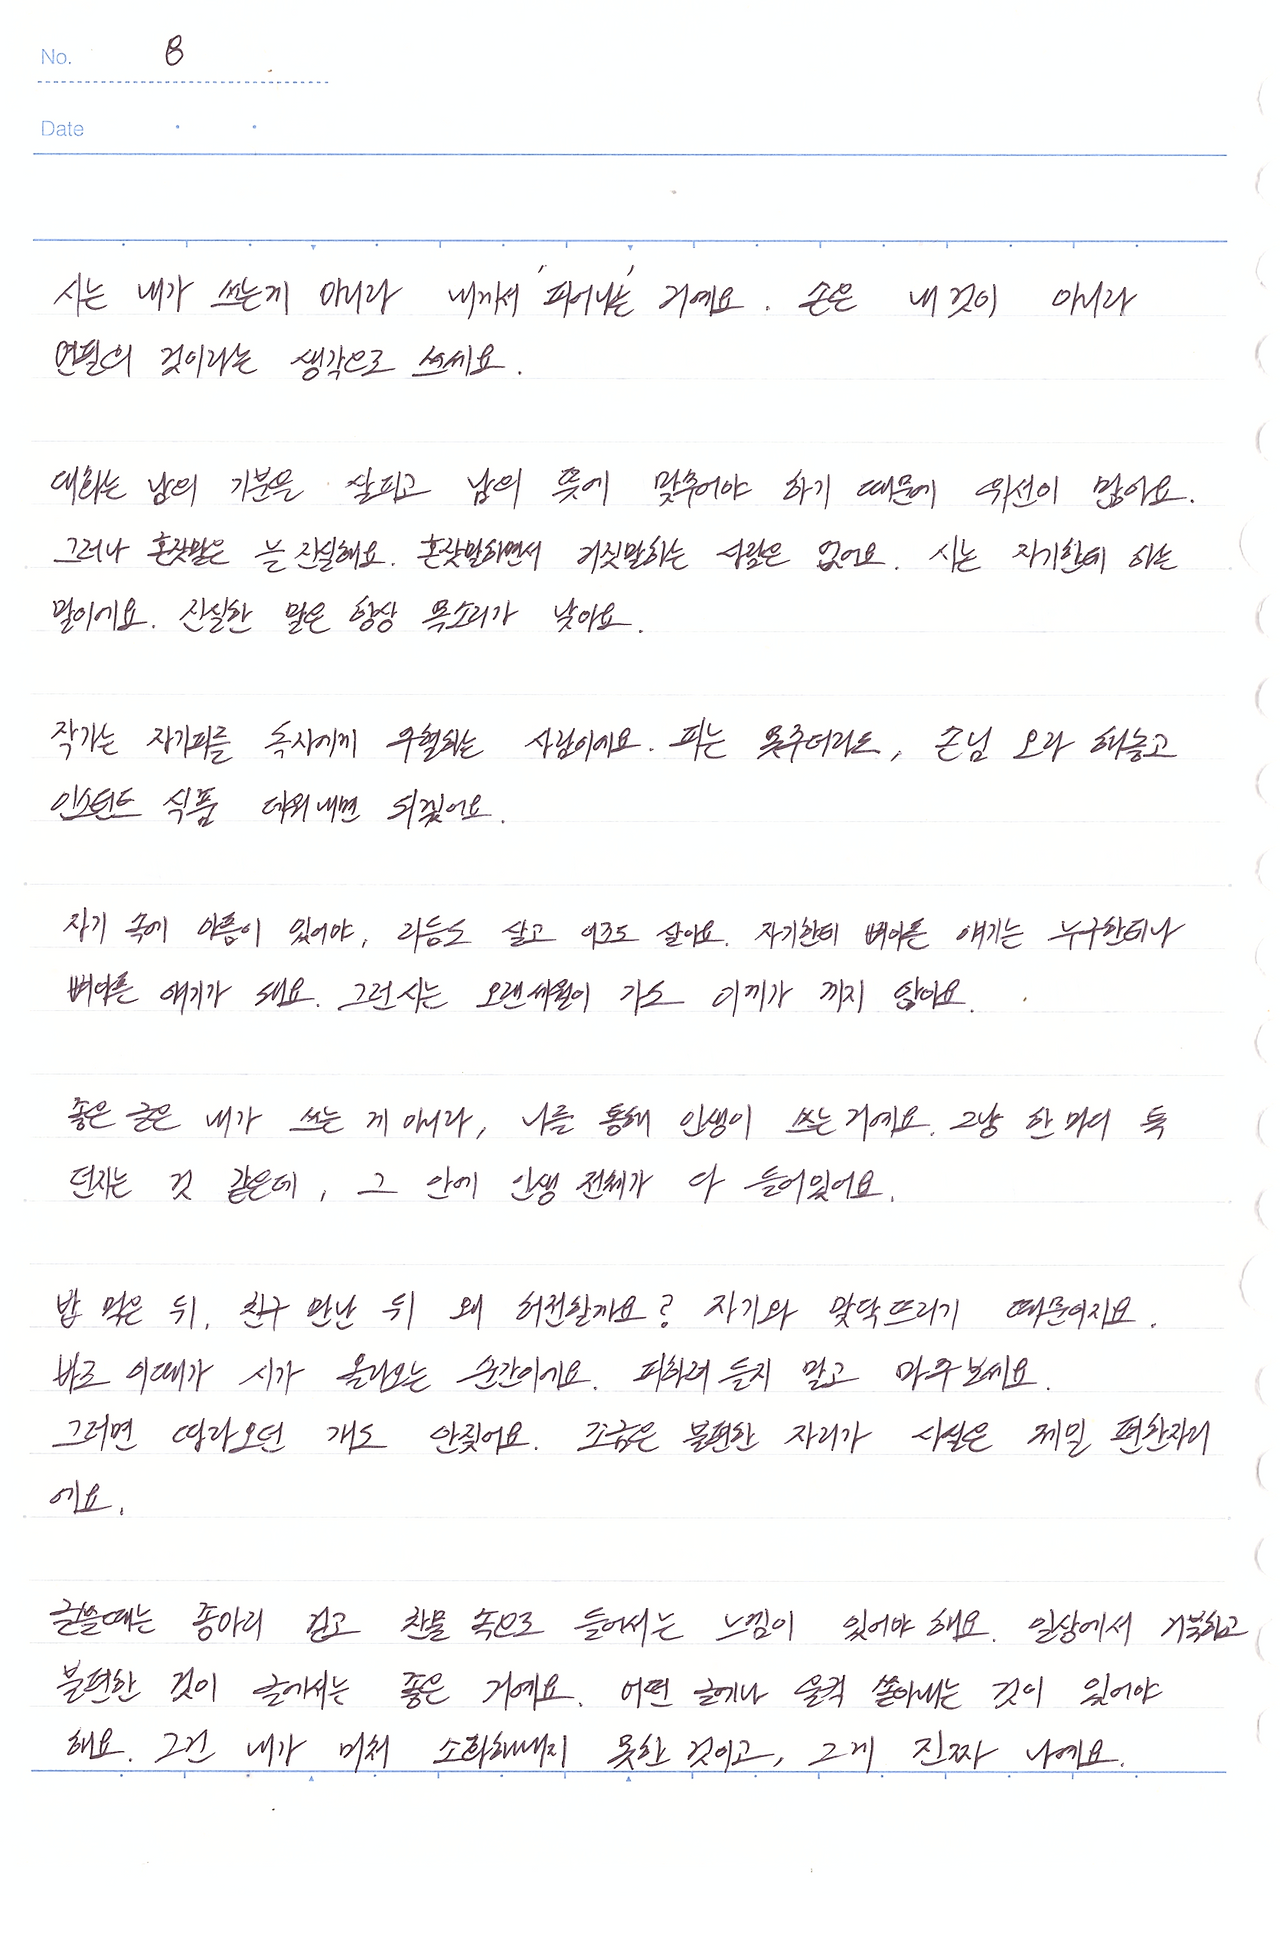 No. 8
Date
시는 내가 쓰는게 아니라 내게서 '피어나는' 거예요. 손은 내 것이 아니라
연필의 것이라는 생각으로 쓰세요.
대화는 남의 기분을 살피고 남의 뜻에 맞추어야 하기 때문에 위선이 많아요.
그러나 혼잣말은 늘 진실해요. 혼잣말하면서 거짓말하는 사람은 없어요. 시는 자기한테 하는
말이에요. 진실한 말은 항상 목소리가 낮아요.
작가는 자기피를 독자에게 수혈하는 사람이에요. 피는 못주더라도, 손님 오라 해놓고
인스턴트 식품 데워내면 되겠어요.
자기 속에 아픔이 있어야, 리듬도 살고 어조도 살아요. 자기한테 뼈아픈 얘기는 누구한테나
뼈아픈 얘기가 돼요. 그런 시는 오랜세월이 가도 이끼가 끼지 않아요.
좋은 글은 내가 쓰는 게 아니라, 나를 통해 인생이 쓰는거예요. 그냥 한 마디 툭
던지는 것 같은데, 그 안에 인생 전체가 다 들어있어요.
밥 먹은 뒤, 친구 만난 뒤 왜 허전할까요? 자기와 맞닥뜨리기 때문이지요.
바로 이때가 시가 올라오는 순간이에요. 피하려 들지 말고 마주보세요.
그러면 따라오던 개도 안짖어요. 조금은 불편한 자리가 사실은 제일 편한자리
에요.
글쓸때는 종아리 걷고 찬물 속으로 들어서는 느낌이 있어야 해요. 일상에서 거북하고
불편한 것이 글에서는 좋은 거예요. 어떤 글에나 울컥 쏟아내는 것이 있어야
해요. 그건 내가 미처 소화해내지 못한 것이고, 그게 진짜 나예요.